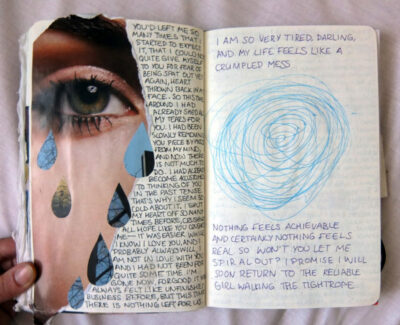 YOU'D LEFT ME SO
MANY TIMES THAT I
STARTED TO EXPECT
IT, THAT I COULD NOT
QUITE GIVE MYSELF
TO YOU FOR FEAR OF
BEING SPAT OUT YET
AGAIN, HEART
THROWN BACK IN MY
FACE. SO THIS TIME
AROUND I HAD
ALREADY SAVED ALL
MY TEARS FOR
YOU. I HAD BEEN
SLOWLY REMOVING
YOU PIECE BY PIECE
FROM MY MIND,
AND NOW THERE
IS NOT MUCH TO
DO. I HAD ALREADY
BECOME ACCUSTOMED
TO THINKING OF YOU
IN THE PAST TENSE.
THAT'S WHY I SEEM SO
COLD ABOUT IT. I SHUT
MY HEART OFF SO MANY
TIMES BEFORE, CRUSHED
ALL HOPE LIKE YOU CRUSHED
ME - IT WAS EASIER WHEN
I KNOW I LOVE YOU, AND I
PROBABLY ALWAYS WILL. I
AM NOT IN LOVE WITH YOU
AND I HAD NOT BEEN FOR
QUITE SOME TIME. I'M
GONE NOW, FOR GOOD. IT HAS
ALWAYS FELT LIKE UNFINISHED
BUSINESS BEFORE, BUT THIS TIME
THERE IS NOTHING LEFT FOR US.
I AM SO VERY TIRED, DARLING,
AND MY LIFE FEELS LIKE A
CRUMPLED MESS
NOTHING FEELS ACHIEVABLE
AND CERTAINLY NOTHING FEELS
REAL SO WON'T YOU LET ME
SPIRAL OUT? I PROMISE I WILL
SOON RETURN TO THE RELIABLE
GIRL WALKING THE TIGHTROPE